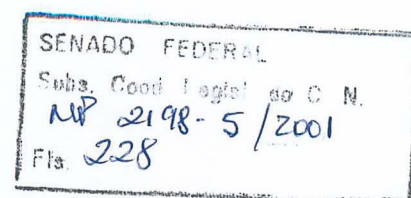 SENADO FEDERAL
Subs. Coord. Legisl. do C. N.
MP 2198-5/2001
Fls. 228